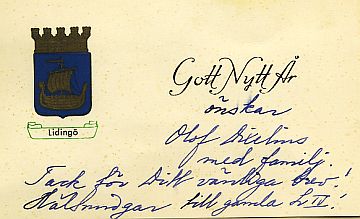 Lidingö
Gott Nytt År
önskar
Olof
med familj.
Tack för Ditt vänliga brev!
Hälsningar till gamla